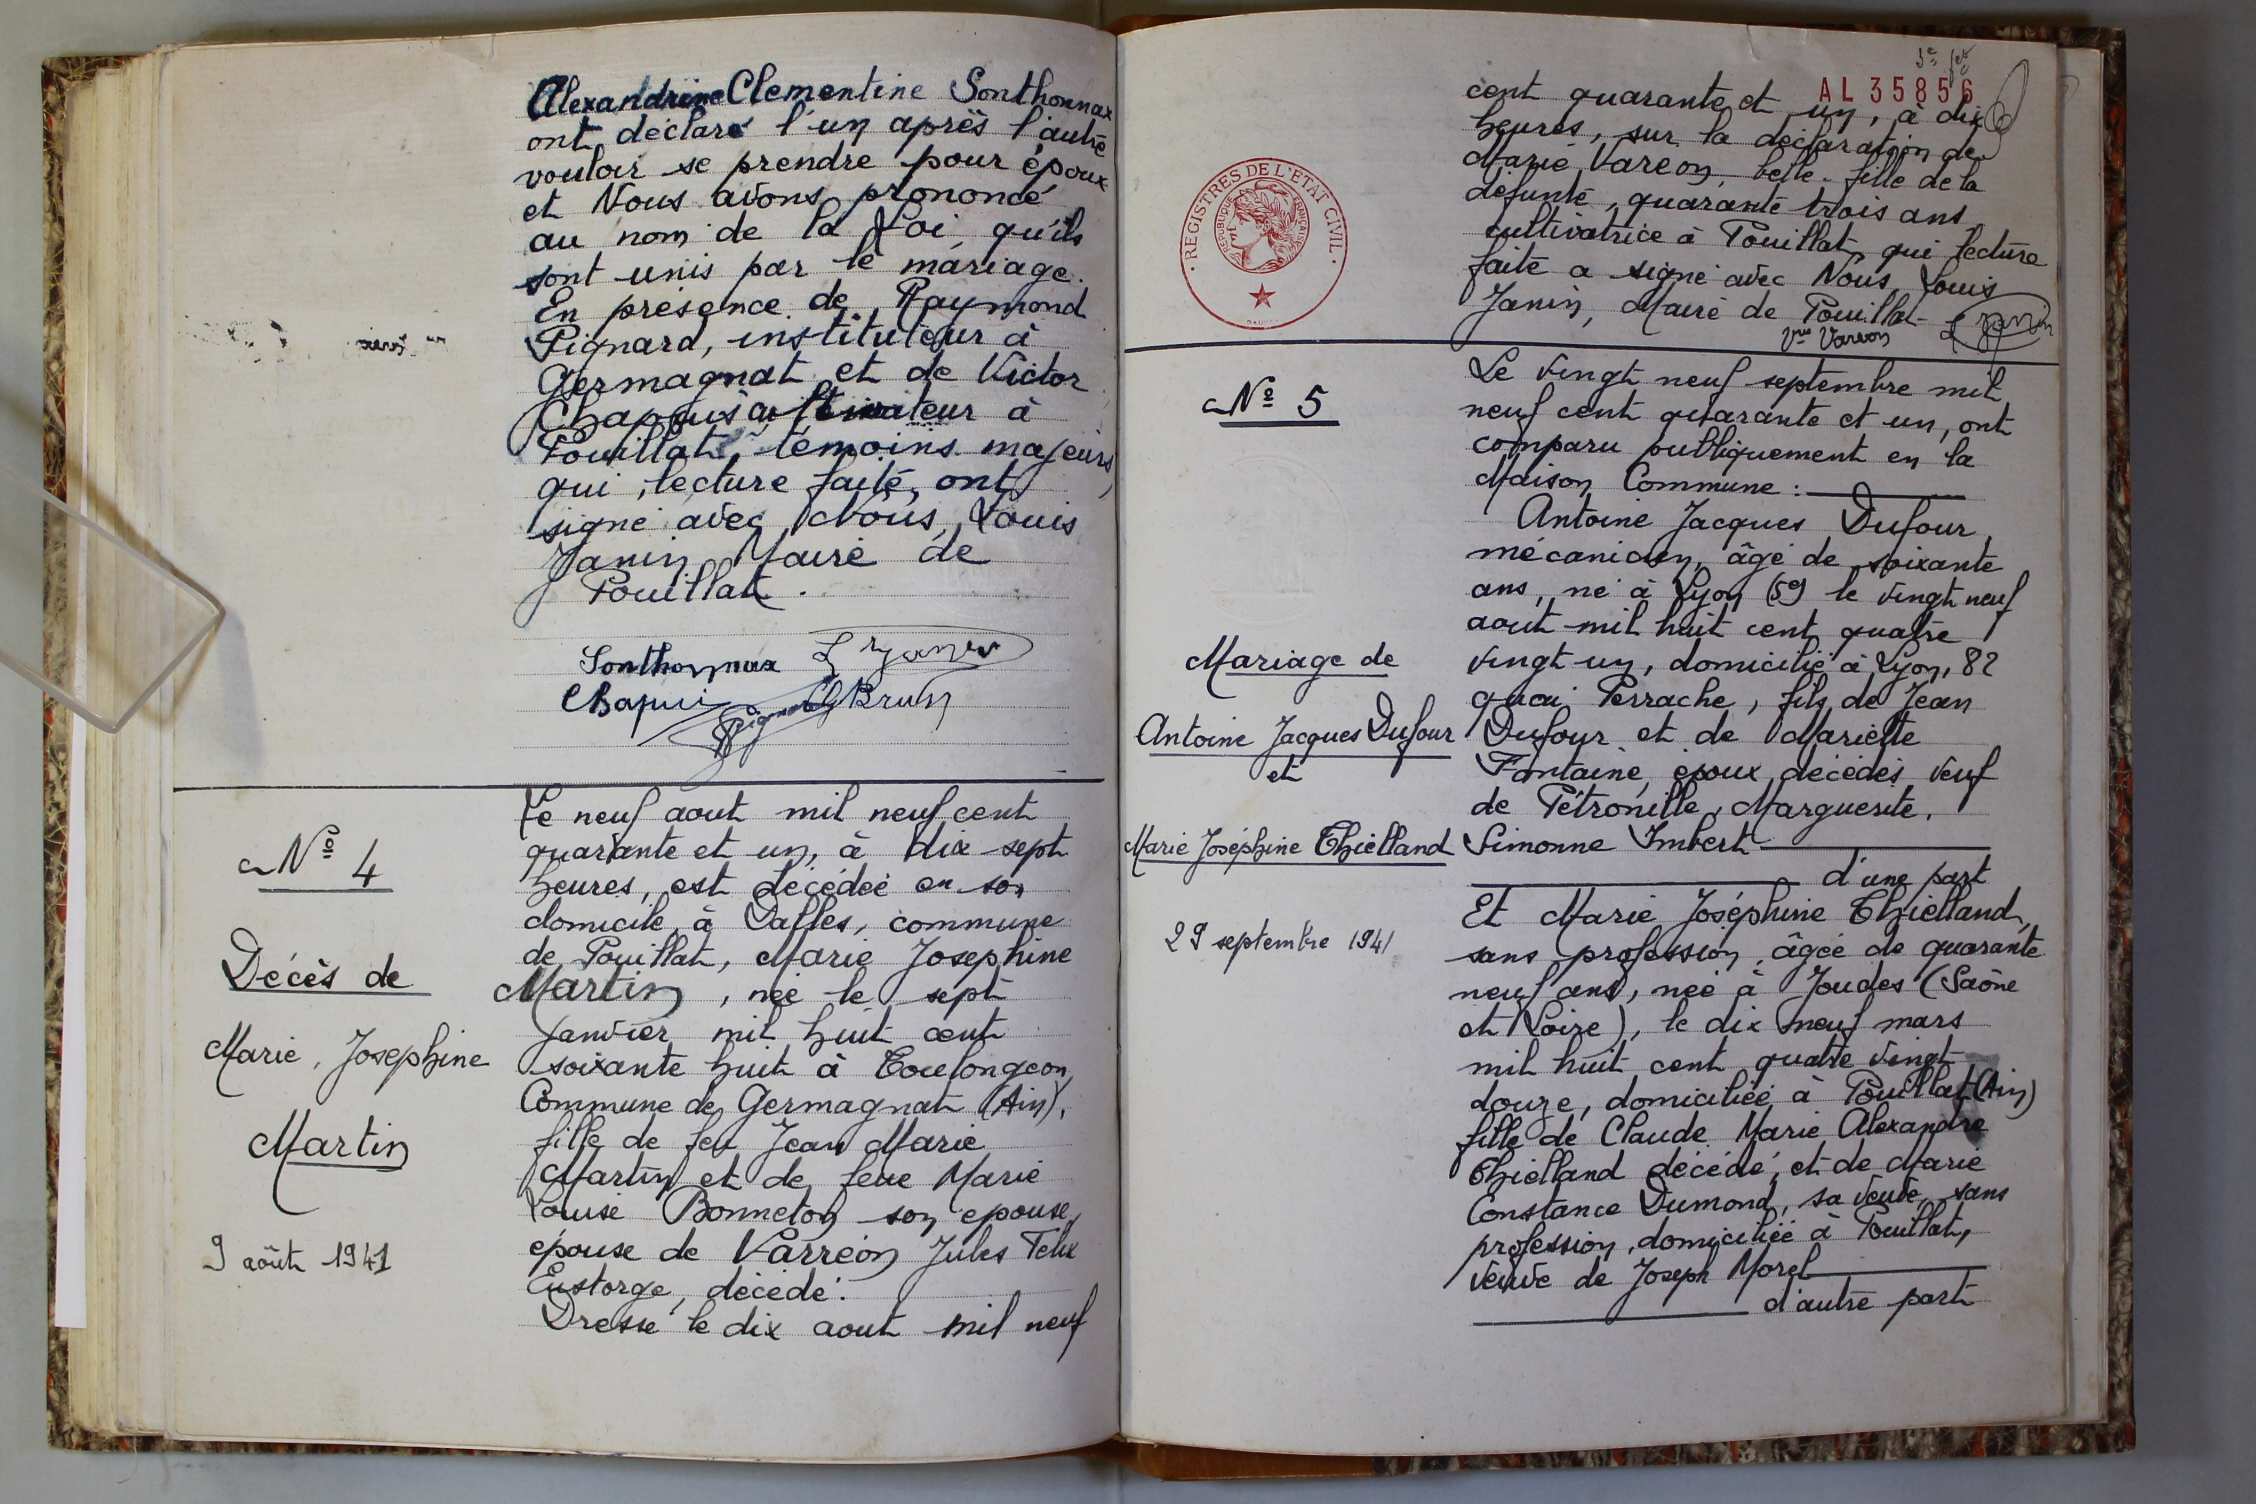 Alexandrine Clementine Sonthonnax
ont déclaré l'un après l'autre
vouloir se prendre pour époux
et Nous avons prononcé
au nom de la Loi qu'ils
sont unis par le mariage.
En présence de Raymond
Pignard, instituteur à
Germagnat et de Victor
Chapuis cultivateur à
Pouillat, témoins majeurs,
qui, lecture faite, ont
signé avec Nous, Louis
Janin Maire de
Pouillat.
Sonthonnax L Janin
Chapui Pignard Brun
Nº 4
Décès de
Marie, Josephine
Martin
9 août 1941
Le neuf aout mil neuf cent
quarante et un, à dix sept
heures, est décédée en son
domicile à Dalles, commune
de Pouillat, Marie Josephine
Martin, née le sept
janvier mil huit cent
soixante huit à Toulongeon
Commune de Germagnat (Ain),
fille de feu Jean Marie
Martin et de feue Marie
Louise Bonneton son epouse,
épouse de Varréon Jules Felix
Eustorge, décédé.
Dressé le dix aout mil neuf
AL 35856
cent quarante et un, à dix
heures, sur la déclaration de
Marie Varéon, belle-fille de la
défunte, quarante trois ans,
cultivatrice à Pouillat qui lecture
faite a signé avec Nous, Louis
Janin, Maire de Pouillat
Vve Vareon L Janin
REGISTRES DE L'ETAT CIVIL
REPUBLIQUE FRANÇAISE
Nº 5
Mariage de
Antoine Jacques Dufour
et
Marie Joséphine Thielland
29 septembre 1941
Le vingt neuf septembre mil
neuf cent quarante et un, ont
comparu publiquement en la
Maison Commune :
Antoine Jacques Dufour,
mécanicien, âgé de soixante
ans, né à Lyon (5e) le vingt neuf
aout mil huit cent quatre
vingt-un, domicilié à Lyon, 82
quai Perrache, fils de Jean
Dufour et de Mariette
Fontaine, époux décédés veuf
de Pétronille, Marguerite,
Simonne Imbert
d'une part
Et Marie Joséphine Thielland,
sans profession, âgée de quarante
neuf ans, née à Joudes (Saône
et Loire), le dix neuf mars
mil huit cent quatre vingt
douze, domiciliée à Pouillat (Ain)
fille de Claude Marie Alexandre
Thielland décédé, et de Marie
Constance Dumond, sa veuve, sans
profession, domiciliée à Pouillat,
veuve de Joseph Morel
d'autre part